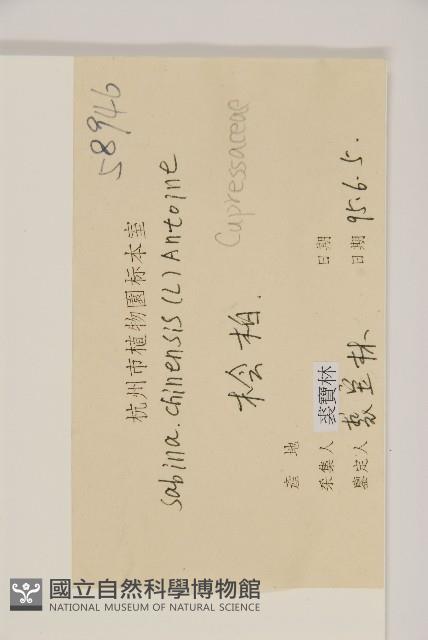 58946
杭州市植物园标本室
Sabina.chinensis(L)Antoine
桧柏.
Cupressaceae
产 地
采集人 裘寶林 日期
鉴定人 裘宝林 日期 95.6.5.
國立自然科學博物館
NATIONAL MUSEUM OF NATURAL SCIENCE